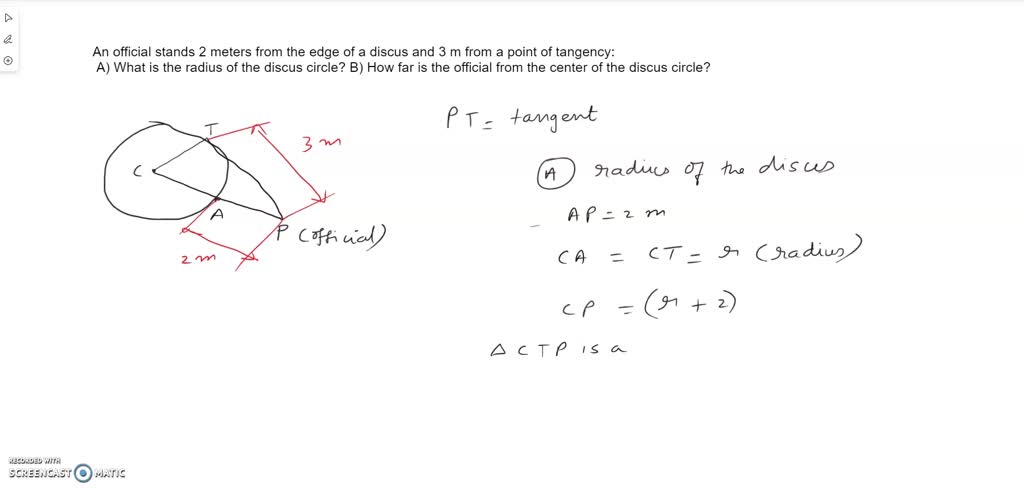 An official stands 2 meters from the edge of a discus and 3 m from a point of tangency:
A) What is the radius of the discus circle? B) How far is the official from the center of the discus circle?
PT = tangent
T
3 m
C
(A) radius of the discus
A
AP = 2 m
P (official)
2 m
CA = CT = r (radius)
CP = (r + 2)
Δ CTP is a
RECORDED WITH
SCREENCAST MATIC